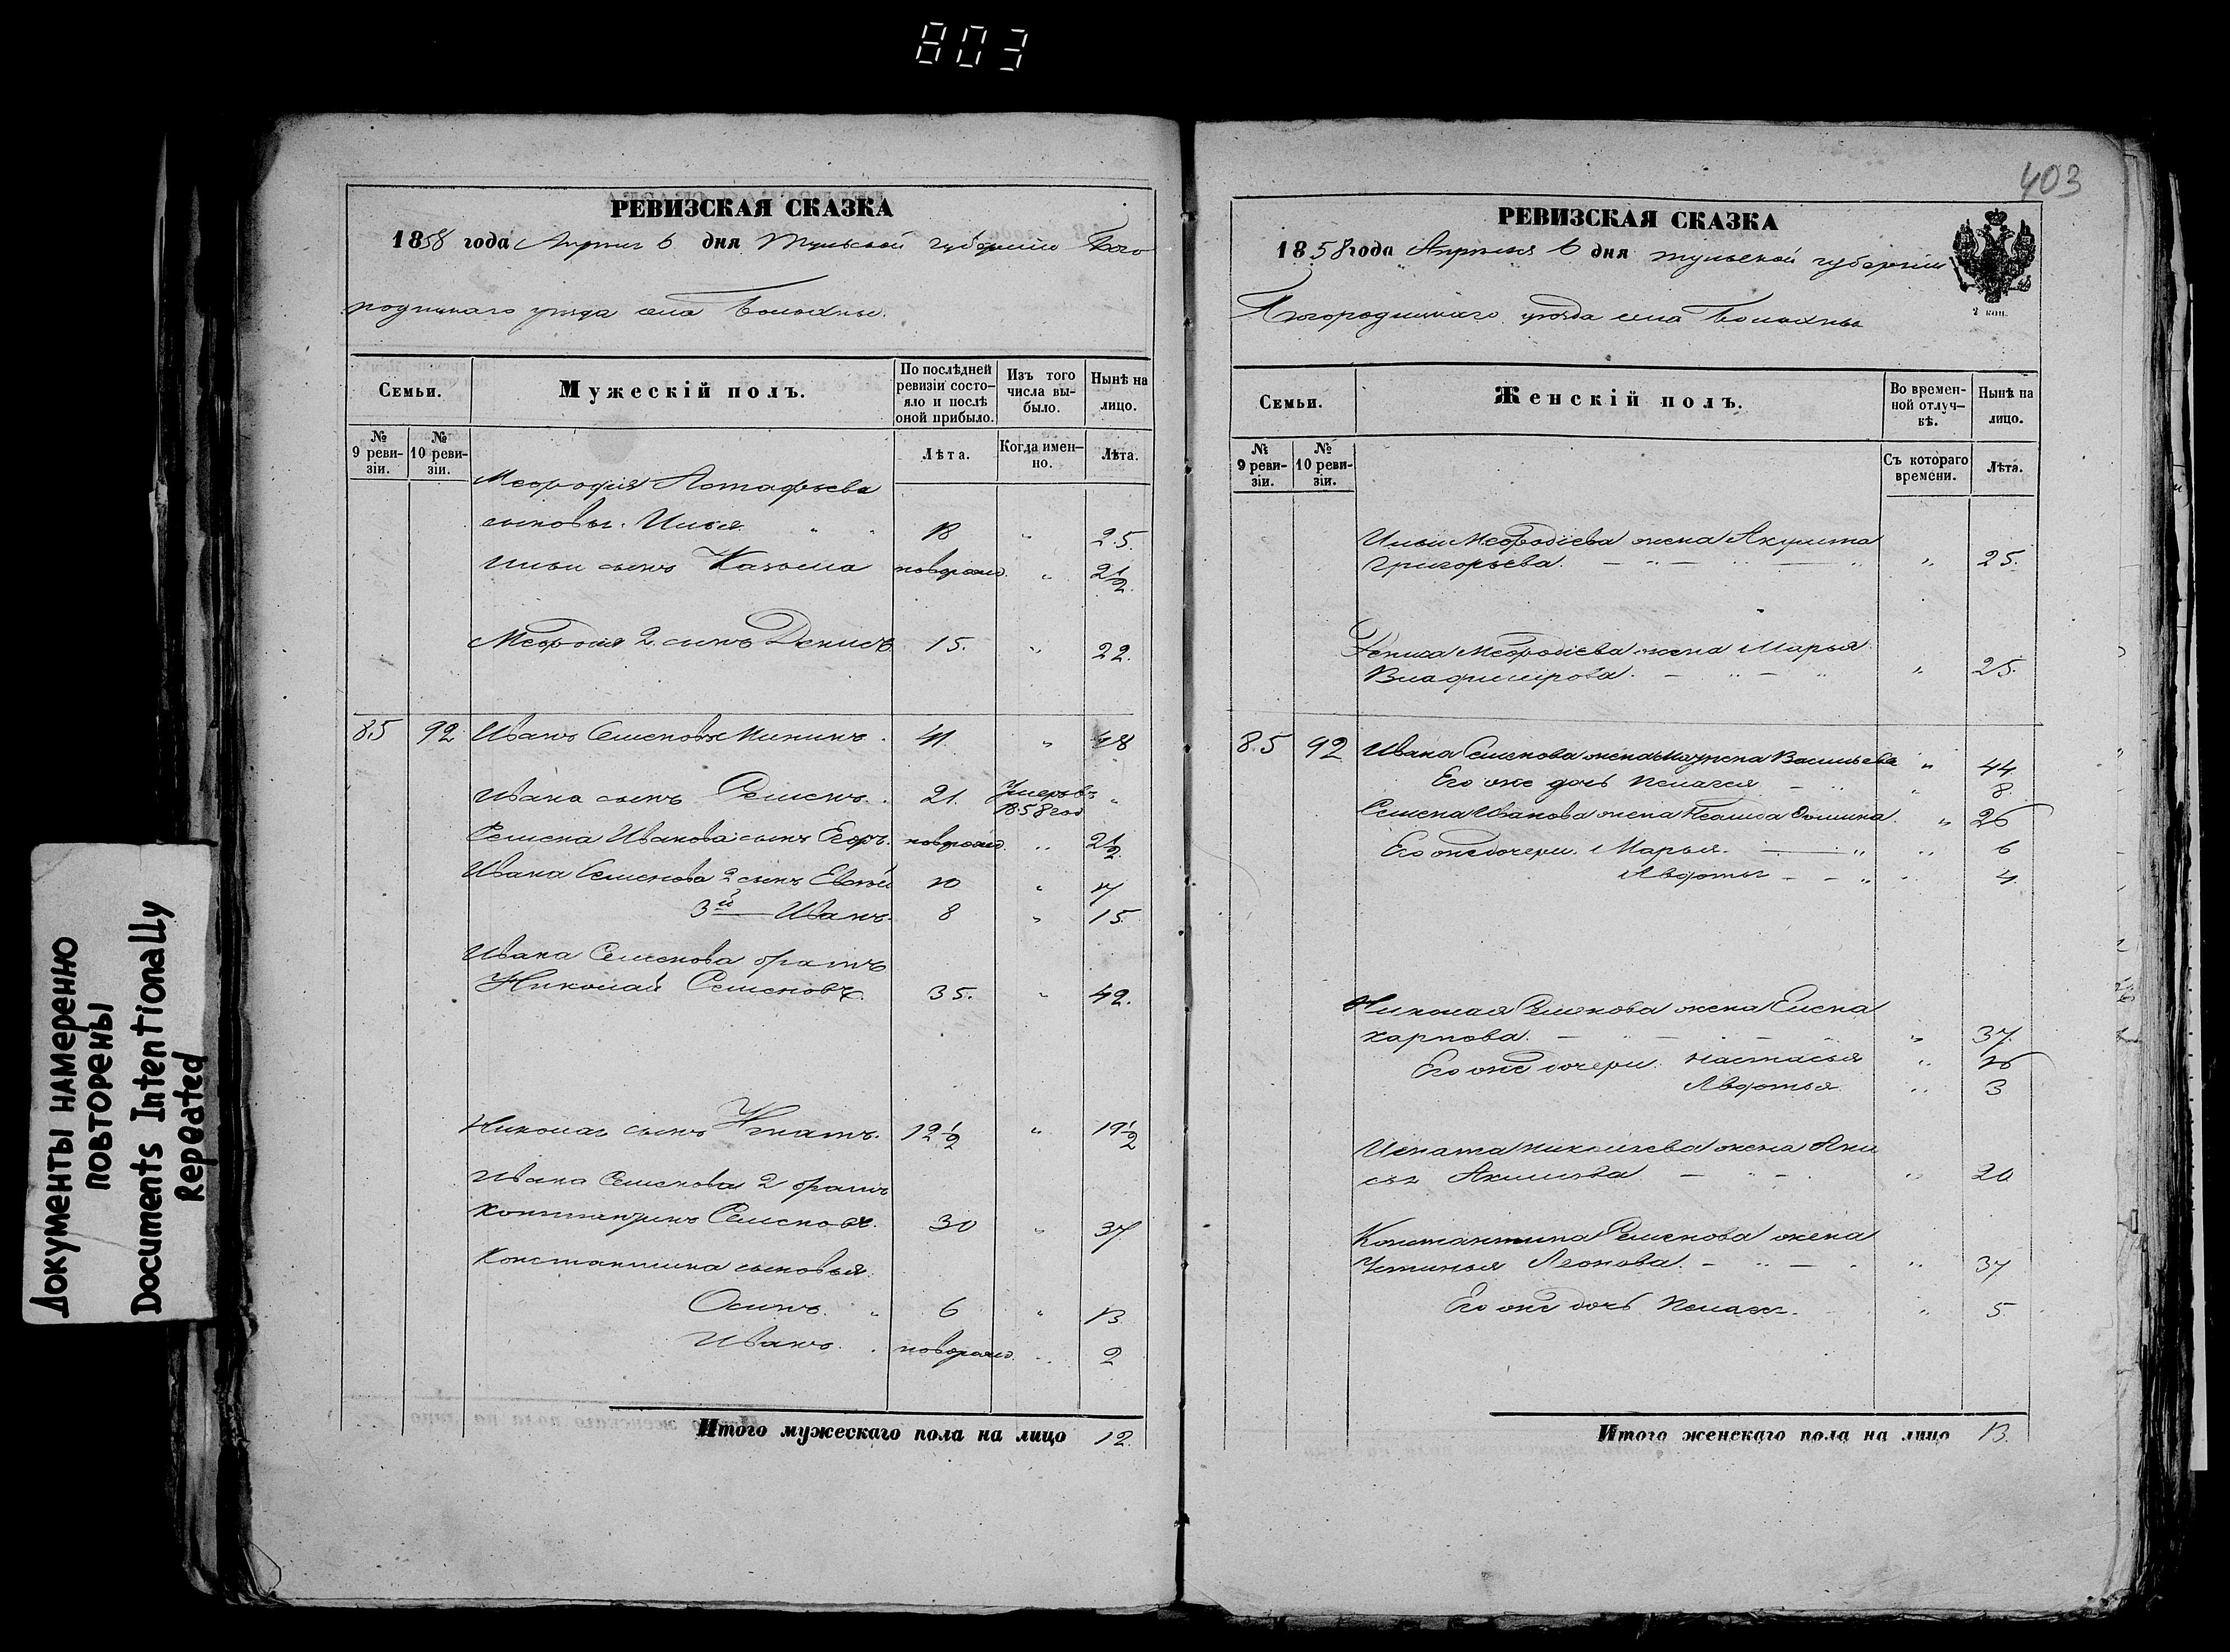 803
403
Документы намеренно
повторены
Documents Intentionally
Repeated
РЕВИЗСКАЯ СКАЗКА
1858 года Апреля 6 дня Тульской губернии Бого
родицкаго уезда села Волохны.
Семьи.
Мужескій полъ.
По послѣдней
ревизіи состо-
яло и послѣ
оной прибыло.
Изъ того
числа вы-
было.
Нынѣ на
лицо.
№
9 реви-
зіи.
№
10 реви-
зіи.
Лѣта.
Когда имен-
но.
Лѣта.
Мефодія Астафьева
сыновья. Илья " " 18 " 25.
Ильи сынъ Казьма новорожд. " 2 1/2
Мефодія 2. сынъ Денисъ 15. " 22.
85 92 Иванъ Семеновъ Мининъ. 41. " 48
Ивана сынъ Семенъ. 21. Умеръ въ "
1858 год
Семена Иванова сынъ Егоръ. новорожд. " 2 1/2
Ивана Семенова 2 сынъ 10 "
3й — Иванъ. 8 " 15.
Ивана Семенова братъ
Николай Семеновъ. 35. " 42.
Николая сынъ Игнатъ. 12 1/2 " 19 1/2
Ивана Семенова 2 братъ
Константинъ Семеновъ. 30 " 37
Константина сыновья.
Осипъ. " 6 " 13
Иванъ. . новорожд. " 2
Итого мужескаго пола на лицо 12.
РЕВИЗСКАЯ СКАЗКА
1858 года Апреля 6 дня Тульской губерніи
Богородицкаго уезда села Волохны
2 коп.
Семьи.
Женскій полъ.
Во времен-
ной отлуч-
кѣ.
Нынѣ на
лицо.
№
9 реви-
зіи.
№
10 реви-
зіи.
Съ котораго
времени.
Лѣта.
Ильи Мефодіева жена Акулина
Григорьева. — " — " — " " 25.
Дениса Мефодіева жена Марья
Владимірова. — " — " " 25.
85 92 Ивана Семенова жена Васильева " 44
Его же дочь Пелагея — " " 8.
Семена Иванова жена " 26
Его же дочери. Марья. — " " 6
Авдотья — — " " 4.
Николая Семенова жена Елена
Карпова. — " — " — " 37.
Его же дочери. Настасья " 16
Авдотья " 3
Игната Николаева жена Ани
сья Акимова — " — " 20
Константина Семенова жена
Устинья Леонова. — " — . " 37
Его же дочь Пелагея. " 5.
Итого женскаго пола на лицо 13.